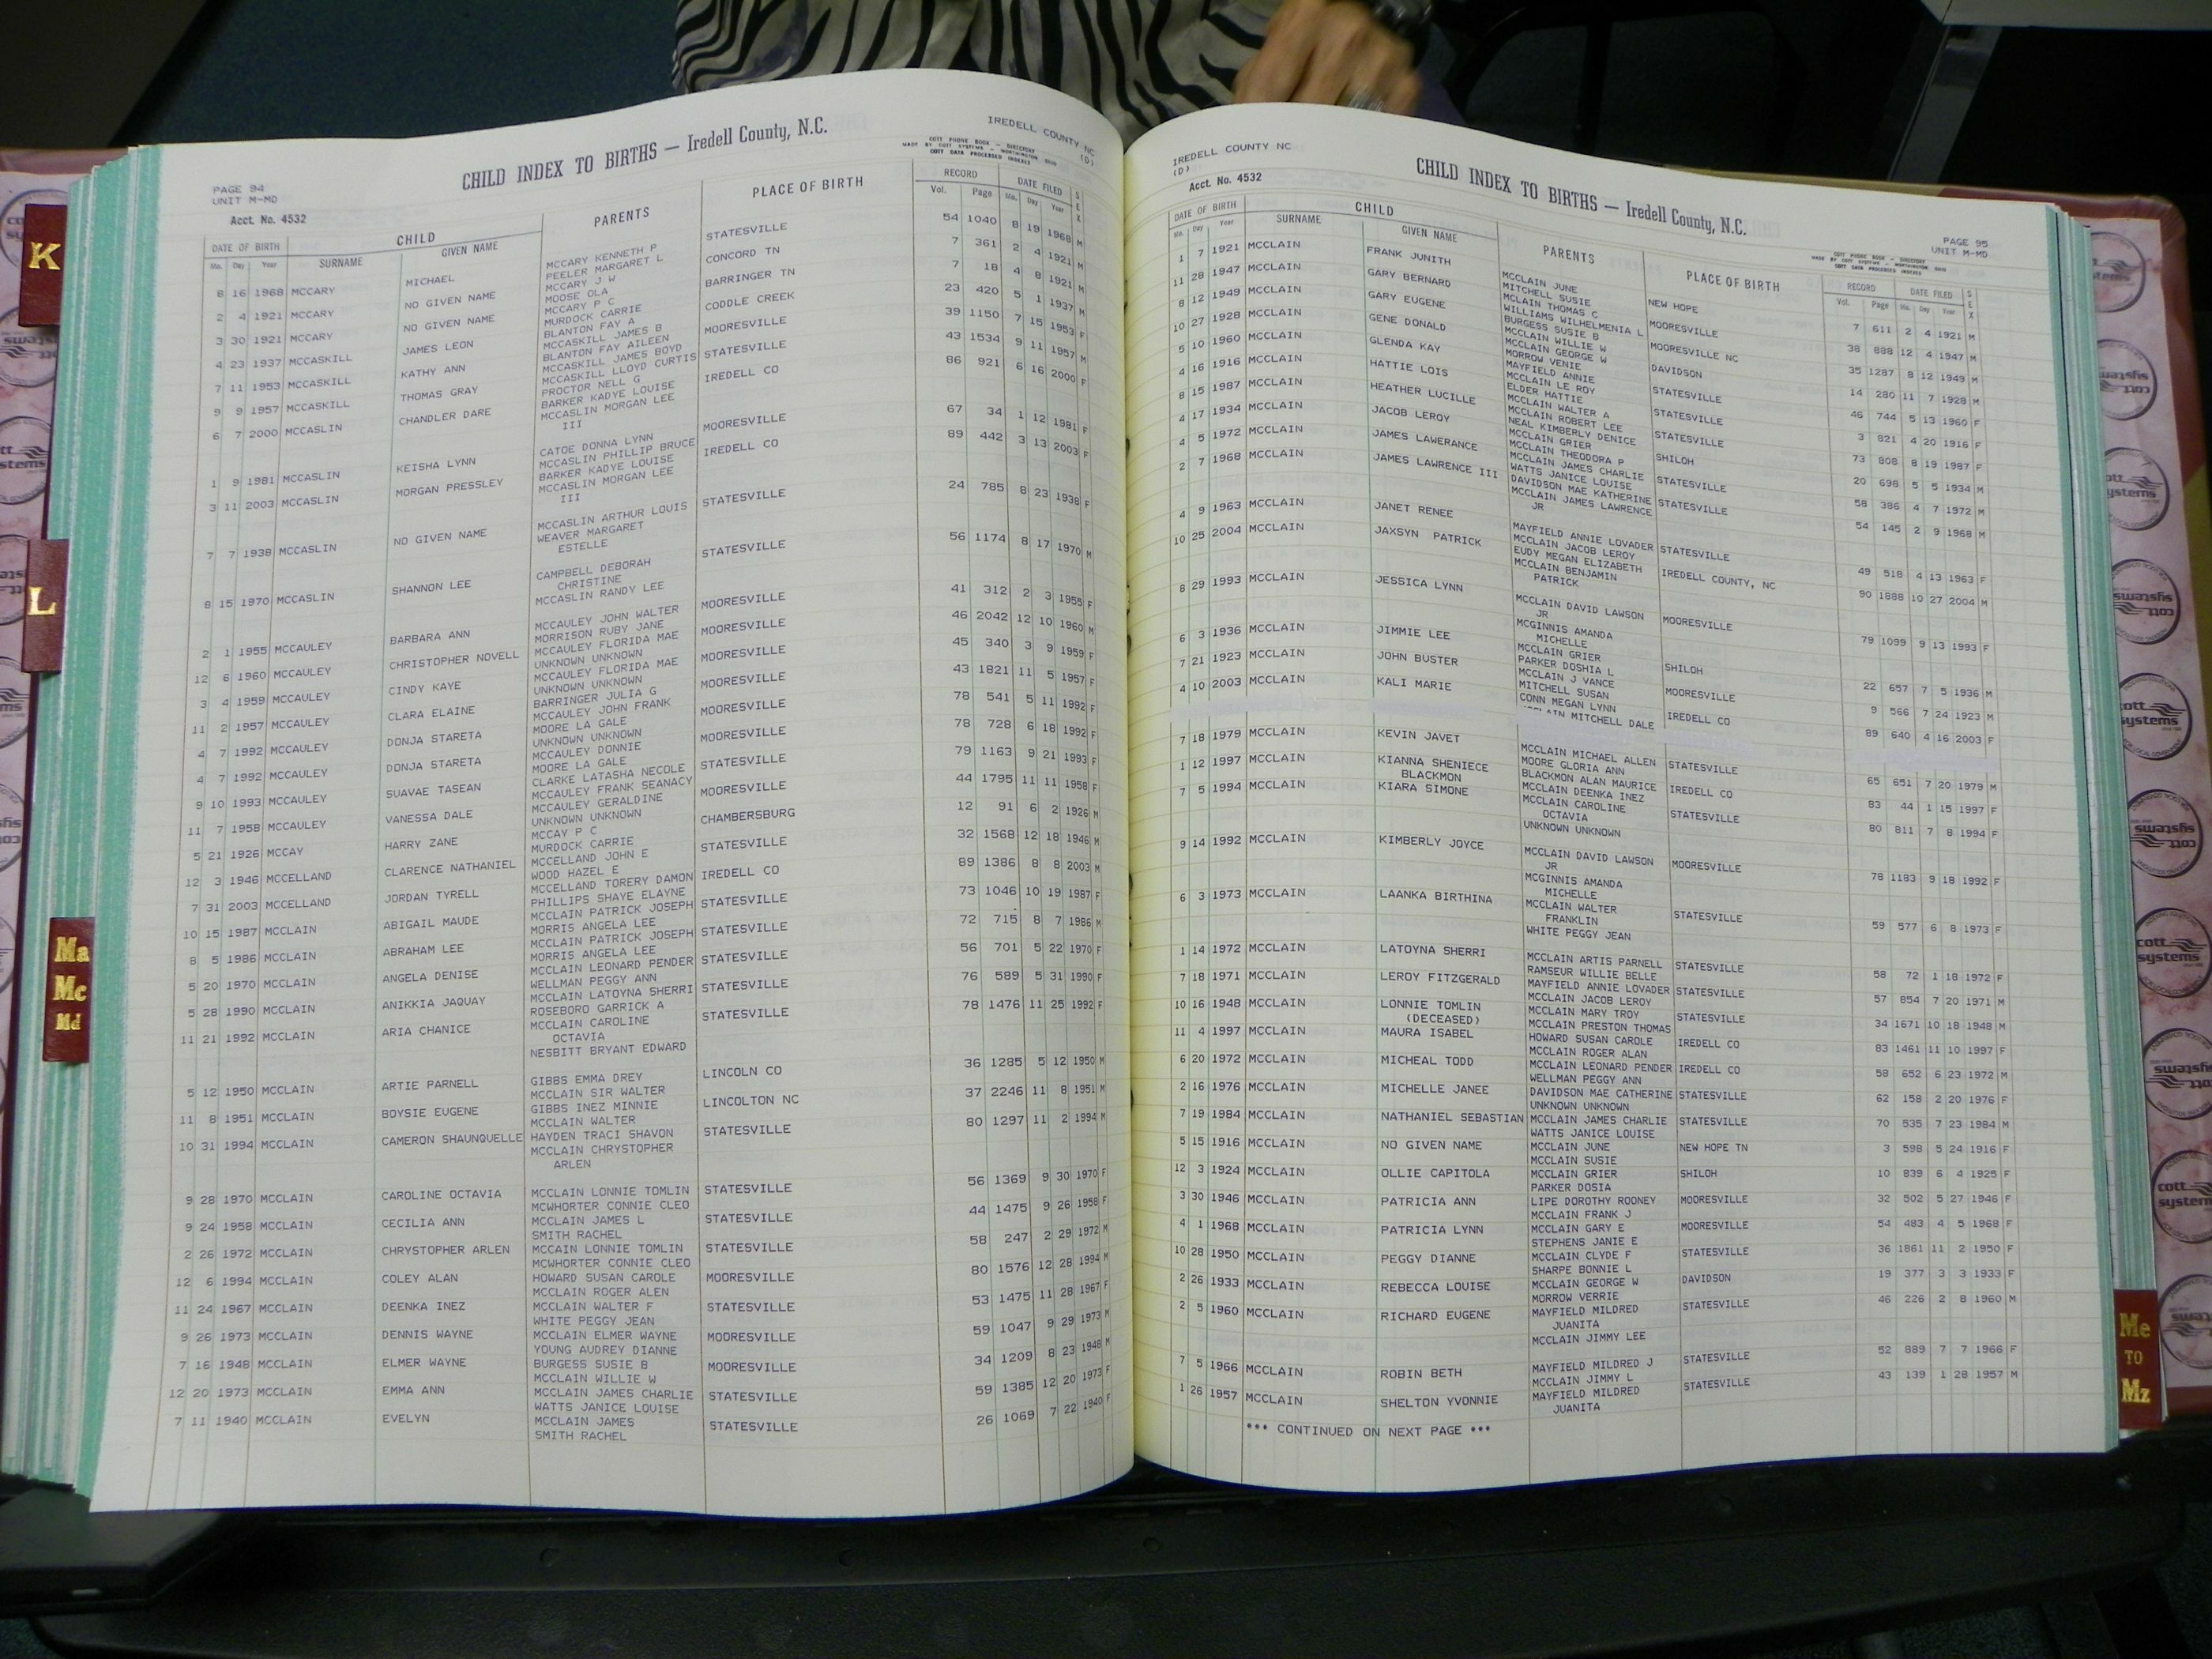 PAGE 94
UNIT M-MD
CHILD INDEX TO BIRTHS — Iredell County, N.C.
IREDELL COUNTY NC
(D)
COTT PHONE BOOK - DIRECTORY
MADE BY COTT SYSTEMS - WORTHINGTON OHIO
COTT DATA PROCESSED INDEXES
Acct. No. 4532
DATE OF BIRTH CHILD PARENTS PLACE OF BIRTH RECORD DATE FILED SEX
Mo. Day Year SURNAME GIVEN NAME Vol. Page Mo. Day Year
8 16 1968 MCCARY MICHAEL MCCARY KENNETH P STATESVILLE 54 1040 8 19 1968 M
PEELER MARGARET L
2 4 1921 MCCARY NO GIVEN NAME MCCARY J W CONCORD TN 7 361 2 4 1921 M
MOOSE OLA
3 30 1921 MCCARY NO GIVEN NAME MCCARY P C BARRINGER TN 7 18 4 8 1921 M
MURDOCK CARRIE
4 23 1937 MCCASKILL JAMES LEON BLANTON FAY A CODDLE CREEK 23 420 5 1 1937 M
MCCASKILL JAMES B
7 11 1953 MCCASKILL KATHY ANN BLANTON FAY AILEEN MOORESVILLE 39 1150 7 15 1953 F
MCCASKILL JAMES BOYD
9 9 1957 MCCASKILL THOMAS GRAY MCCASKILL LLOYD CURTIS STATESVILLE 43 1534 9 11 1957 M
PROCTOR NELL G
6 7 2000 MCCASLIN CHANDLER DARE BARKER KADYE LOUISE IREDELL CO 86 921 6 16 2000 F
MCCASLIN MORGAN LEE
III
1 9 1981 MCCASLIN KEISHA LYNN CATOE DONNA LYNN MOORESVILLE 67 34 1 12 1981 F
MCCASLIN PHILLIP BRUCE
3 11 2003 MCCASLIN MORGAN PRESSLEY BARKER KADYE LOUISE IREDELL CO 89 442 3 13 2003 F
MCCASLIN MORGAN LEE
III
7 7 1938 MCCASLIN NO GIVEN NAME MCCASLIN ARTHUR LOUIS STATESVILLE 24 785 8 23 1938 F
WEAVER MARGARET
ESTELLE
8 15 1970 MCCASLIN SHANNON LEE CAMPBELL DEBORAH STATESVILLE 56 1174 8 17 1970 M
CHRISTINE
MCCASLIN RANDY LEE
2 1 1955 MCCAULEY BARBARA ANN MCCAULEY JOHN WALTER MOORESVILLE 41 312 2 3 1955 F
MORRISON RUBY JANE
12 6 1960 MCCAULEY CHRISTOPHER NOVELL MCCAULEY FLORIDA MAE MOORESVILLE 46 2042 12 10 1960 M
UNKNOWN UNKNOWN
3 4 1959 MCCAULEY CINDY KAYE MCCAULEY FLORIDA MAE MOORESVILLE 45 340 3 9 1959 F
UNKNOWN UNKNOWN
11 2 1957 MCCAULEY CLARA ELAINE BARRINGER JULIA G MOORESVILLE 43 1821 11 5 1957 F
MCCAULEY JOHN FRANK
4 7 1992 MCCAULEY DONJA STARETA MOORE LA GALE MOORESVILLE 78 541 5 11 1992 F
UNKNOWN UNKNOWN
4 7 1992 MCCAULEY DONJA STARETA MCCAULEY DONNIE MOORESVILLE 78 728 6 18 1992 F
MOORE LA GALE
9 10 1993 MCCAULEY SUAVAE TASEAN CLARKE LATASHA NECOLE STATESVILLE 79 1163 9 21 1993 F
MCCAULEY FRANK SEANACY
11 7 1958 MCCAULEY VANESSA DALE MCCAULEY GERALDINE MOORESVILLE 44 1795 11 11 1958 F
UNKNOWN UNKNOWN
5 21 1926 MCCAY HARRY ZANE MCCAY P C CHAMBERSBURG 12 91 6 2 1926 M
MURDOCK CARRIE
12 3 1946 MCCELLAND CLARENCE NATHANIEL MCCELLAND JOHN E STATESVILLE 32 1568 12 18 1946 M
WOOD HAZEL E
7 31 2003 MCCELLAND JORDAN TYRELL MCCELLAND TORERY DAMON IREDELL CO 89 1386 8 8 2003 M
PHILLIPS SHAYE ELAYNE
10 15 1987 MCCLAIN ABIGAIL MAUDE MCCLAIN PATRICK JOSEPH STATESVILLE 73 1046 10 19 1987 F
MORRIS ANGELA LEE
8 5 1986 MCCLAIN ABRAHAM LEE MCCLAIN PATRICK JOSEPH STATESVILLE 72 715 8 7 1986 M
MORRIS ANGELA LEE
5 20 1970 MCCLAIN ANGELA DENISE MCCLAIN LEONARD PENDER STATESVILLE 56 701 5 22 1970 F
WELLMAN PEGGY ANN
5 28 1990 MCCLAIN ANIKKIA JAQUAY MCCLAIN LATOYNA SHERRI STATESVILLE 76 589 5 31 1990 F
ROSEBORO GARRICK A
11 21 1992 MCCLAIN ARIA CHANICE MCCLAIN CAROLINE STATESVILLE 78 1476 11 25 1992 F
OCTAVIA
NESBITT BRYANT EDWARD
5 12 1950 MCCLAIN ARTIE PARNELL GIBBS EMMA DREY LINCOLN CO 36 1285 5 12 1950 M
MCCLAIN SIR WALTER
11 8 1951 MCCLAIN BOYSIE EUGENE GIBBS INEZ MINNIE LINCOLTON NC 37 2246 11 8 1951 M
MCCLAIN WALTER
10 31 1994 MCCLAIN CAMERON SHAUNQUELLE HAYDEN TRACI SHAVON STATESVILLE 80 1297 11 2 1994 M
MCCLAIN CHRYSTOPHER
ARLEN
9 28 1970 MCCLAIN CAROLINE OCTAVIA MCCLAIN LONNIE TOMLIN STATESVILLE 56 1369 9 30 1970 F
MCWHORTER CONNIE CLEO
9 24 1958 MCCLAIN CECILIA ANN MCCLAIN JAMES L STATESVILLE 44 1475 9 26 1958 F
SMITH RACHEL
2 26 1972 MCCLAIN CHRYSTOPHER ARLEN MCCAIN LONNIE TOMLIN STATESVILLE 58 247 2 29 1972 M
MCWHORTER CONNIE CLEO
12 6 1994 MCCLAIN COLEY ALAN HOWARD SUSAN CAROLE MOORESVILLE 80 1576 12 28 1994 M
MCCLAIN ROGER ALEN
11 24 1967 MCCLAIN DEENKA INEZ MCCLAIN WALTER F STATESVILLE 53 1475 11 28 1967 F
WHITE PEGGY JEAN
9 26 1973 MCCLAIN DENNIS WAYNE MCCLAIN ELMER WAYNE MOORESVILLE 59 1047 9 29 1973 M
YOUNG AUDREY DIANNE
7 16 1948 MCCLAIN ELMER WAYNE BURGESS SUSIE B MOORESVILLE 34 1209 8 23 1948 M
MCCLAIN WILLIE W
12 20 1973 MCCLAIN EMMA ANN MCCLAIN JAMES CHARLIE STATESVILLE 59 1385 12 20 1973 F
WATTS JANICE LOUISE
7 11 1940 MCCLAIN EVELYN MCCLAIN JAMES STATESVILLE 26 1069 7 22 1940 F
SMITH RACHEL
IREDELL COUNTY NC
(D)
CHILD INDEX TO BIRTHS — Iredell County, N.C.
PAGE 95
UNIT M-MD
Acct. No. 4532
COTT PHONE BOOK - DIRECTORY
MADE BY COTT SYSTEMS - WORTHINGTON OHIO
COTT DATA PROCESSED INDEXES
DATE OF BIRTH CHILD PARENTS PLACE OF BIRTH RECORD DATE FILED SEX
Mo. Day Year SURNAME GIVEN NAME Vol. Page Mo. Day Year
1 7 1921 MCCLAIN FRANK JUNITH MCCLAIN JUNE NEW HOPE 7 611 2 4 1921 M
MITCHELL SUSIE
11 28 1947 MCCLAIN GARY BERNARD MCLAIN THOMAS C MOORESVILLE 38 898 12 4 1947 M
WILLIAMS WILHELMENIA L
8 12 1949 MCCLAIN GARY EUGENE BURGESS SUSIE B MOORESVILLE NC 35 1287 8 12 1949 M
MCCLAIN WILLIE W
10 27 1928 MCCLAIN GENE DONALD MCCLAIN GEORGE W DAVIDSON 14 280 11 7 1928 M
MORROW VENIE
5 10 1960 MCCLAIN GLENDA KAY MAYFIELD ANNIE STATESVILLE 46 744 5 13 1960 F
MCCLAIN LE ROY
4 16 1916 MCCLAIN HATTIE LOIS ELDER HATTIE STATESVILLE 3 821 4 20 1916 F
MCCLAIN WALTER A
8 15 1987 MCCLAIN HEATHER LUCILLE MCCLAIN ROBERT LEE STATESVILLE 73 808 8 19 1987 F
NEAL KIMBERLY DENICE
4 17 1934 MCCLAIN JACOB LEROY MCCLAIN GRIER SHILOH 20 698 5 5 1934 M
MCCLAIN THEODORA P
4 5 1972 MCCLAIN JAMES LAWERANCE MCCLAIN JAMES CHARLIE STATESVILLE 58 386 4 7 1972 M
WATTS JANICE LOUISE
2 7 1968 MCCLAIN JAMES LAWRENCE III DAVIDSON MAE KATHERINE STATESVILLE 54 145 2 9 1968 M
MCCLAIN JAMES LAWRENCE
JR
4 9 1963 MCCLAIN JANET RENEE MAYFIELD ANNIE LOVADER STATESVILLE 49 518 4 13 1963 F
MCCLAIN JACOB LEROY
10 25 2004 MCCLAIN JAXSYN PATRICK EUDY MEGAN ELIZABETH IREDELL COUNTY, NC 90 1888 10 27 2004 M
MCCLAIN BENJAMIN
PATRICK
8 29 1993 MCCLAIN JESSICA LYNN MCCLAIN DAVID LAWSON MOORESVILLE 79 1099 9 13 1993 F
JR
MCGINNIS AMANDA
MICHELLE
6 3 1936 MCCLAIN JIMMIE LEE MCCLAIN GRIER SHILOH 22 657 7 5 1936 M
PARKER DOSHIA L
7 21 1923 MCCLAIN JOHN BUSTER MCCLAIN J VANCE MOORESVILLE 9 566 7 24 1923 M
MITCHELL SUSAN
4 10 2003 MCCLAIN KALI MARIE CONN MEGAN LYNN IREDELL CO 89 640 4 16 2003 F
MITCHELL DALE
7 18 1979 MCCLAIN KEVIN JAVET MCCLAIN MICHAEL ALLEN STATESVILLE 65 651 7 20 1979 M
MOORE GLORIA ANN
1 12 1997 MCCLAIN KIANNA SHENIECE BLACKMON ALAN MAURICE IREDELL CO 83 44 1 15 1997 F
BLACKMON MCCLAIN DEENKA INEZ
7 5 1994 MCCLAIN KIARA SIMONE MCCLAIN CAROLINE STATESVILLE 80 811 7 8 1994 F
OCTAVIA
UNKNOWN UNKNOWN
9 14 1992 MCCLAIN KIMBERLY JOYCE MCCLAIN DAVID LAWSON MOORESVILLE 78 1183 9 18 1992 F
JR
MCGINNIS AMANDA
MICHELLE
6 3 1973 MCCLAIN LAANKA BIRTHINA MCCLAIN WALTER STATESVILLE 59 577 6 8 1973 F
FRANKLIN
WHITE PEGGY JEAN
1 14 1972 MCCLAIN LATOYNA SHERRI MCCLAIN ARTIS PARNELL STATESVILLE 58 72 1 18 1972 F
RAMSEUR WILLIE BELLE
7 18 1971 MCCLAIN LEROY FITZGERALD MAYFIELD ANNIE LOVADER STATESVILLE 57 854 7 20 1971 M
MCCLAIN JACOB LEROY
10 16 1948 MCCLAIN LONNIE TOMLIN MCCLAIN MARY TROY STATESVILLE 34 1671 10 18 1948 M
(DECEASED) MCCLAIN PRESTON THOMAS
11 4 1997 MCCLAIN MAURA ISABEL HOWARD SUSAN CAROLE IREDELL CO 83 1461 11 10 1997 F
MCCLAIN ROGER ALAN
6 20 1972 MCCLAIN MICHEAL TODD MCCLAIN LEONARD PENDER IREDELL CO 58 652 6 23 1972 M
WELLMAN PEGGY ANN
2 16 1976 MCCLAIN MICHELLE JANEE DAVIDSON MAE CATHERINE STATESVILLE 62 158 2 20 1976 F
UNKNOWN UNKNOWN
7 19 1984 MCCLAIN NATHANIEL SEBASTIAN MCCLAIN JAMES CHARLIE STATESVILLE 70 535 7 23 1984 M
WATTS JANICE LOUISE
5 15 1916 MCCLAIN NO GIVEN NAME MCCLAIN JUNE NEW HOPE TN 3 598 5 24 1916 F
MCCLAIN SUSIE
12 3 1924 MCCLAIN OLLIE CAPITOLA MCCLAIN GRIER SHILOH 10 839 6 4 1925 F
PARKER DOSIA
3 30 1946 MCCLAIN PATRICIA ANN LIPE DOROTHY ROONEY MOORESVILLE 32 502 5 27 1946 F
MCCLAIN FRANK J
4 1 1968 MCCLAIN PATRICIA LYNN MCCLAIN GARY E MOORESVILLE 54 483 4 5 1968 F
STEPHENS JANIE E
10 28 1950 MCCLAIN PEGGY DIANNE MCCLAIN CLYDE F STATESVILLE 36 1861 11 2 1950 F
SHARPE BONNIE L
2 26 1933 MCCLAIN REBECCA LOUISE MCCLAIN GEORGE W DAVIDSON 19 377 3 3 1933 F
MORROW VERRIE
2 5 1960 MCCLAIN RICHARD EUGENE MAYFIELD MILDRED STATESVILLE 46 226 2 8 1960 M
JUANITA
MCCLAIN JIMMY LEE
7 5 1966 MCCLAIN ROBIN BETH MAYFIELD MILDRED J STATESVILLE 52 889 7 7 1966 F
MCCLAIN JIMMY L
1 26 1957 MCCLAIN SHELTON YVONNIE MAYFIELD MILDRED STATESVILLE 43 139 1 28 1957 M
JUANITA
*** CONTINUED ON NEXT PAGE ***
K
L
Ma
Mc
Md
Me
TO
Mz
cott
systems